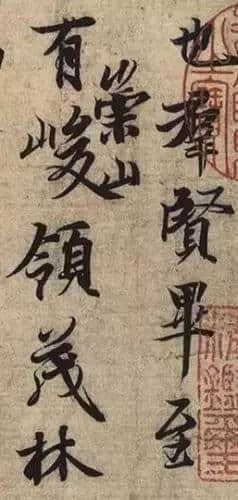 也羣賢畢至
有崇山峻領茂林